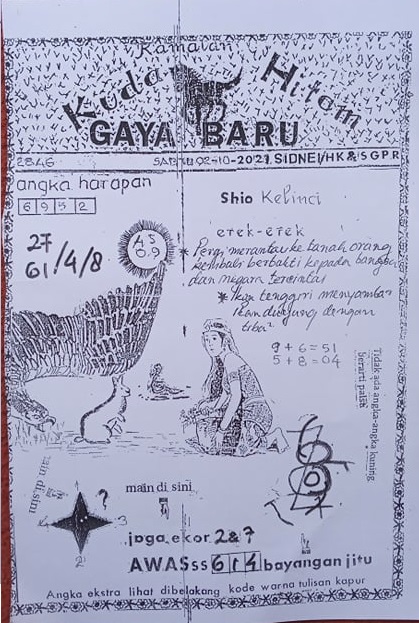 Ramalan
Kuda Hitam
GAYA BARU
2846 SABTU 02-10-2021. SIDNEI/HK & SGPR
angka harapan
6 9 5 2
27
61/4/8
4 5
0.9
Shio Kelinci
erek-erek
* Pergi merantau ke tanah orang
kembali berbakti kepada bangsa
dan negara tercinta
* Ikan tenggiri menyambar
Ikan dujung dengan
tiba²
9 + 6 = 51
5 + 8 = 04
Tidak ada angka-angka kuning
berarti palsu
main di sini
?
4
3
2
main di sini
jaga ekor 2&7
AWASss 6 1 4 bayangan jitu
Angka ekstra lihat dibelakang kode warna tulisan kapur